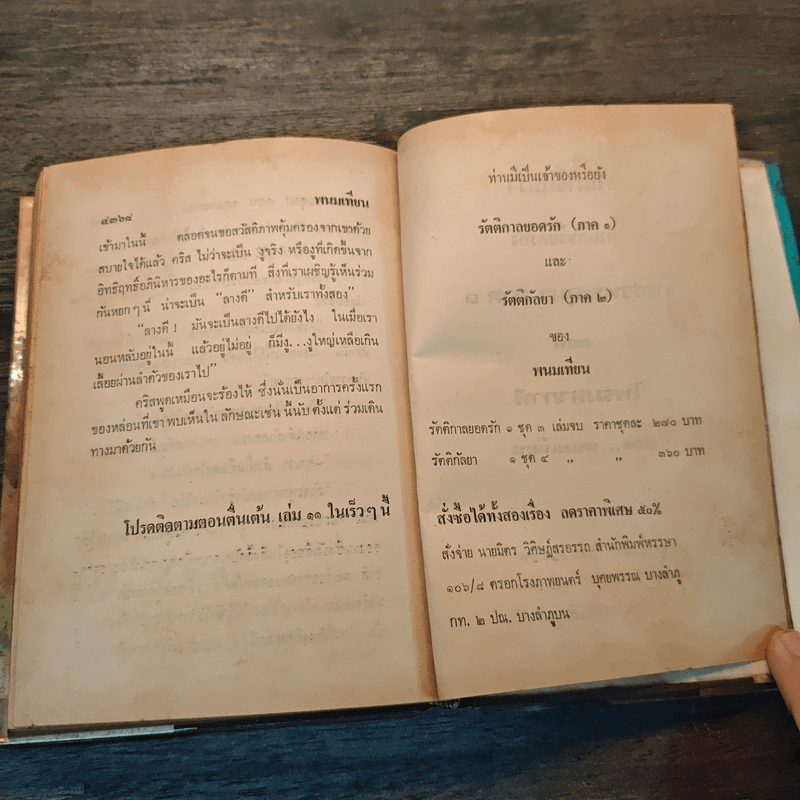 ๔๓๖๘
พนมเทียน
เข้ามาในนี้ ตลอดจนขอสวัสดิภาพคุ้มครองจากเขาด้วย
สบายใจได้แล้ว คริส ไม่ว่าจะเป็น งูจริง หรืองูที่เกิดขึ้นจาก
อิทธิฤทธ์อภินิหารของอะไรก็ตามที สิ่งที่เราเผชิญรู้เห็นร่วม
กันหยกๆ นี้ น่าจะเป็น “ลางดี” สำหรับเราทั้งสอง”
“ลางดี ! มันจะเป็นลางดีไปได้ยังไง ในเมื่อเรา
นอนหลับอยู่ในนี้ แล้วอยู่ไม่อยู่ ก็มีงู...งูใหญ่เหลือเกิน
เลื้อยผ่านลำตัวของเราไป”
คริสพูดเหมือนจะร้องไห้ ซึ่งนั่นเป็นอาการครั้งแรก
ของหล่อนที่เขา พบเห็นใน ลักษณะเช่น นี้นับ ตั้งแต่ ร่วมเดิน
ทางมาด้วยกัน
โปรดติดตามตอนตื่นเต้น เล่ม ๑๑ ในเร็วๆ นี้
ท่านมีเป็นเจ้าของหรือยัง
รัตติกาลยอดรัก (ภาค ๑)
และ
รัตติกัลยา (ภาค ๒)
ของ
พนมเทียน
รัตติกาลยอดรัก ๑ ชุด ๓ เล่มจบ ราคาชุดละ ๒๗๐ บาท
รัตติกัลยา ๑ ชุด ๔ „ „ ๓๖๐ บาท
สั่งซื้อได้ทั้งสองเรื่อง ลดราคาพิเศษ ๕๐%
สั่งจ่าย นายมิตร วิศิษฎ์สรอรรถ สำนักพิมพ์หรรษา
๑๐๖/๘ ตรอกโรงภาพยนตร์ บุศยพรรณ บางลำภู
กท. ๒ ปณ. บางลำภูบน